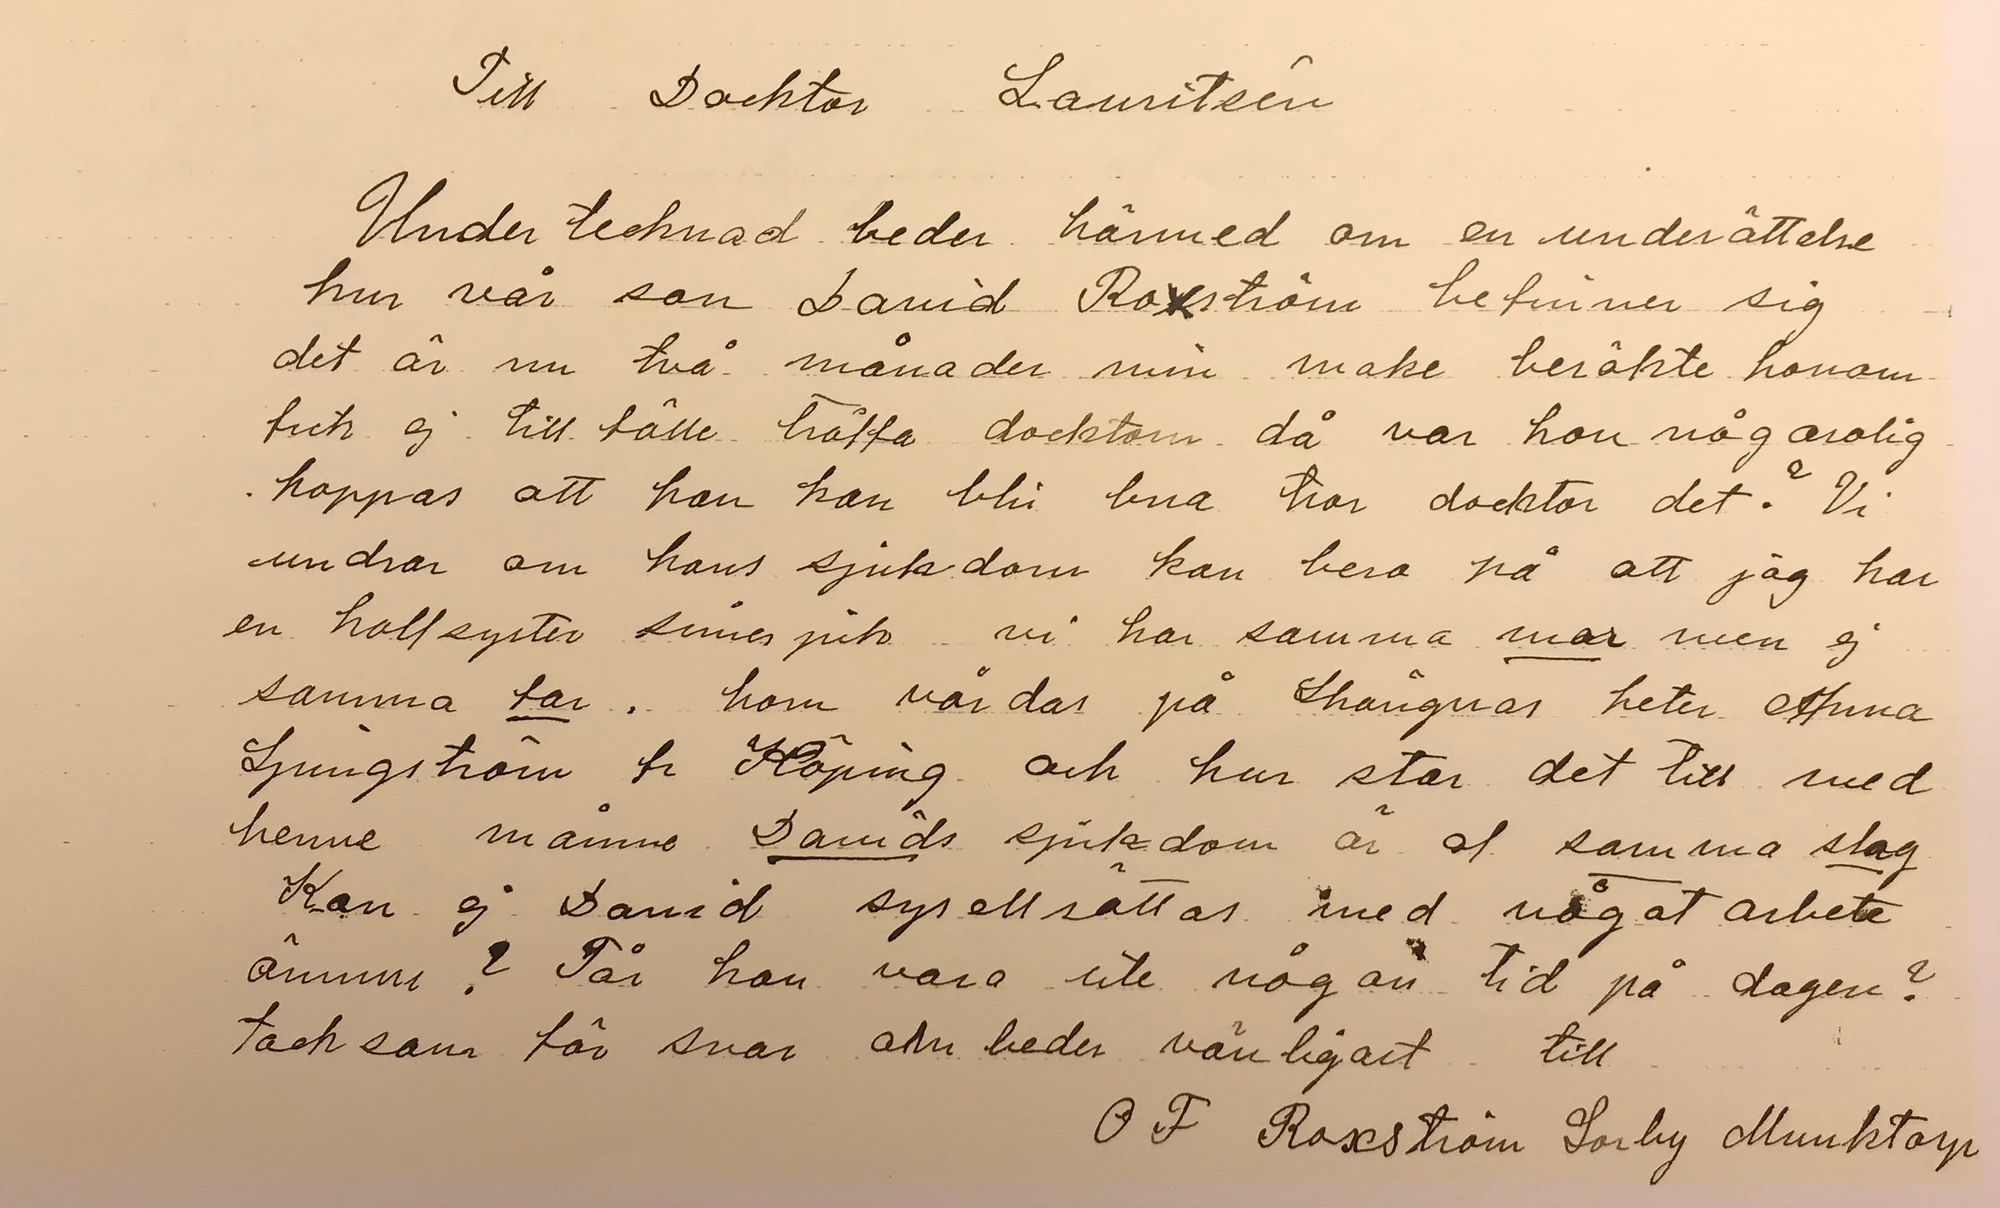 Till Docktor Lauritsén
Undertecknad beder härmed om en underättelse
hur vår son David Roxström befinner sig
det är nu två månader min make besökte honom
fick ej till fälle träffa docktorn då var han någ orolig
hoppas att han kan bli bra tror docktor det? Vi
undrar om hans sjukdom kan bero på att jag har
en halfsyster sinnesjuk vi har samma mor men ej
samma far. hon vårdas på Shängnas heter Anna
Ljungström fr Köping och hur står det till med
henne månne Davids sjukdom är af samma slag
Kan ej David sysellsättas med något arbete
ännu? Får han vara ute någon tid på dagen?
tacksam för svar beder vänligast till
O F Roxström Sorby Munktorp